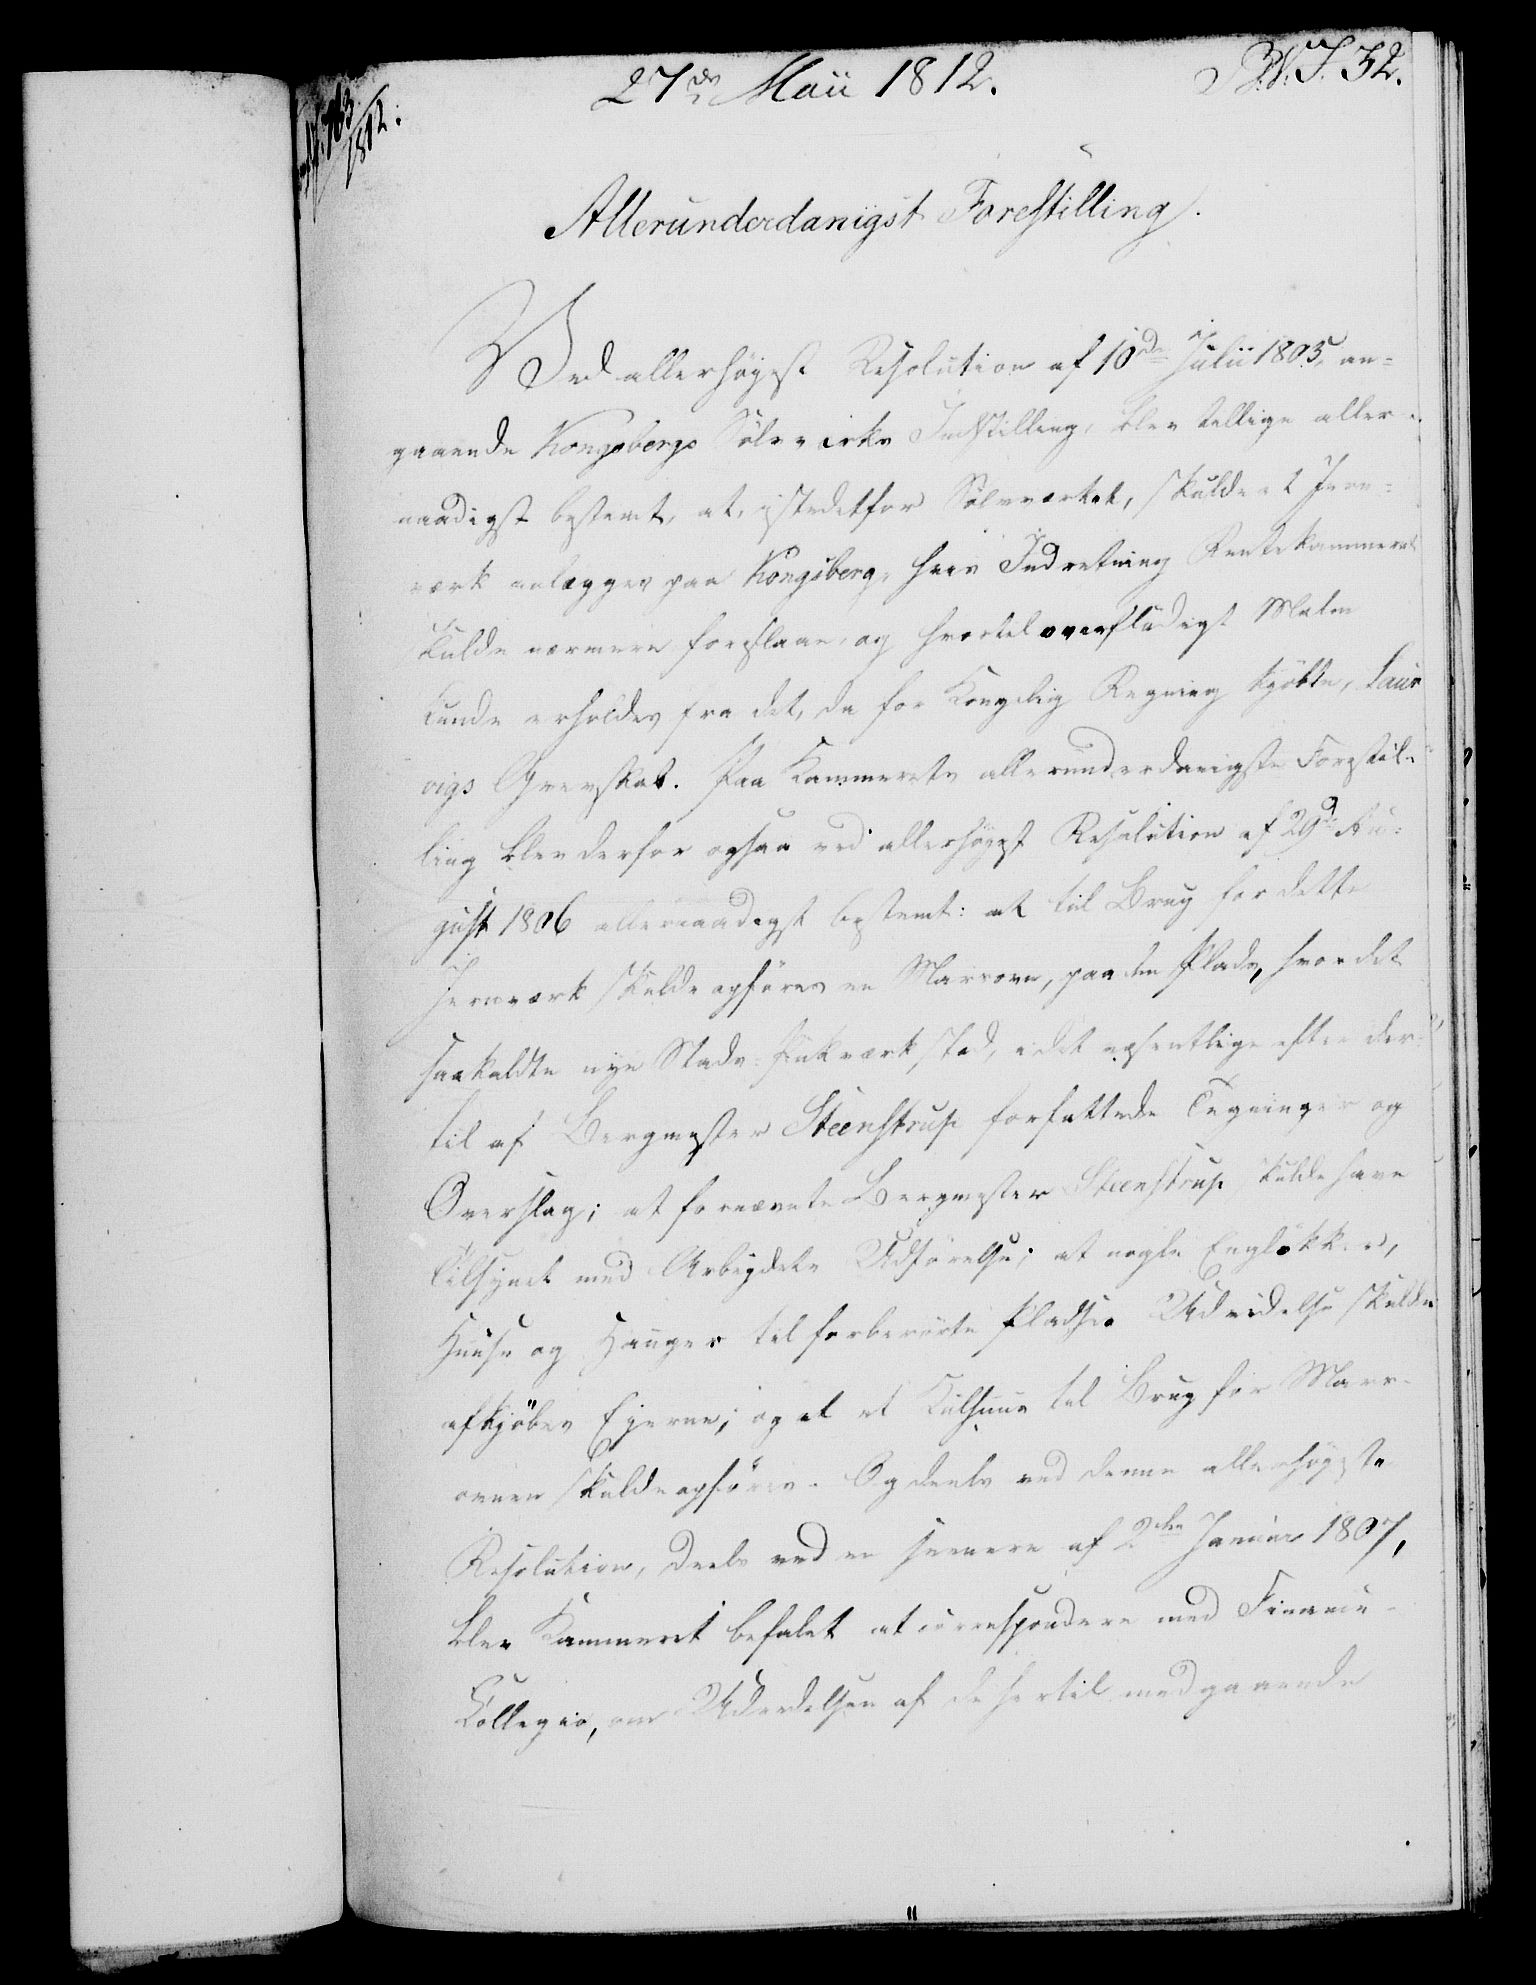 27de Maii 1812.
B.W.J. 32.
163/1812.
Allerunderdanigst Forestilling.
Ved allerhøyest Resolution af 10de Julii 1805, an-
gaaende Kongsbergs Sölvverks Indstilling, blev tillige aller-
naadigst bestemt, at, istedetfor Sölvverket, skulde et Jern-
værk anlægges paa Kongsberg, hvis Indretning Rentekammeret
skulde nærmere foreslaae, og hvortil overflødigt Malm
kunde erholdes fra det, da for Kongelig Regning kjøbte, Laur
vigs Grevskab. Paa Kammerets allerunderdanigste Forestil-
ling blev derfor ogsaa ved allerhøyest Resolution af 29de Au-
gust 1806 allernaadigst bestemt: at til Brug for dette
Jernværk skulde opføres en Marsovn, paa den Plads, hvor det
saakaldte nye Stads-Pukværk stod, i det væsentlige efter der-
til af Bergmester Steenstrup forfattede Tegninger og
Overslag; at fornævnte Bergmester Steenstrup skulde have
Tilsynet med Arbeydets Udførelse; at nogle Engløkker,
Huuse og Hauger til forberørte Pladses Udvidelse skulde
afkjøbes Ejerne; og at et Kulhuus til Brug for Mars-
ovnen skulde opføres. Og deels ved denne allerhøyeste
Resolution, deels ved en senere af 2den Januar 1807,
blev Kammeret befalet at correspondere med Finants-
Collegio, om Udredelsen af de hertil medgaaende